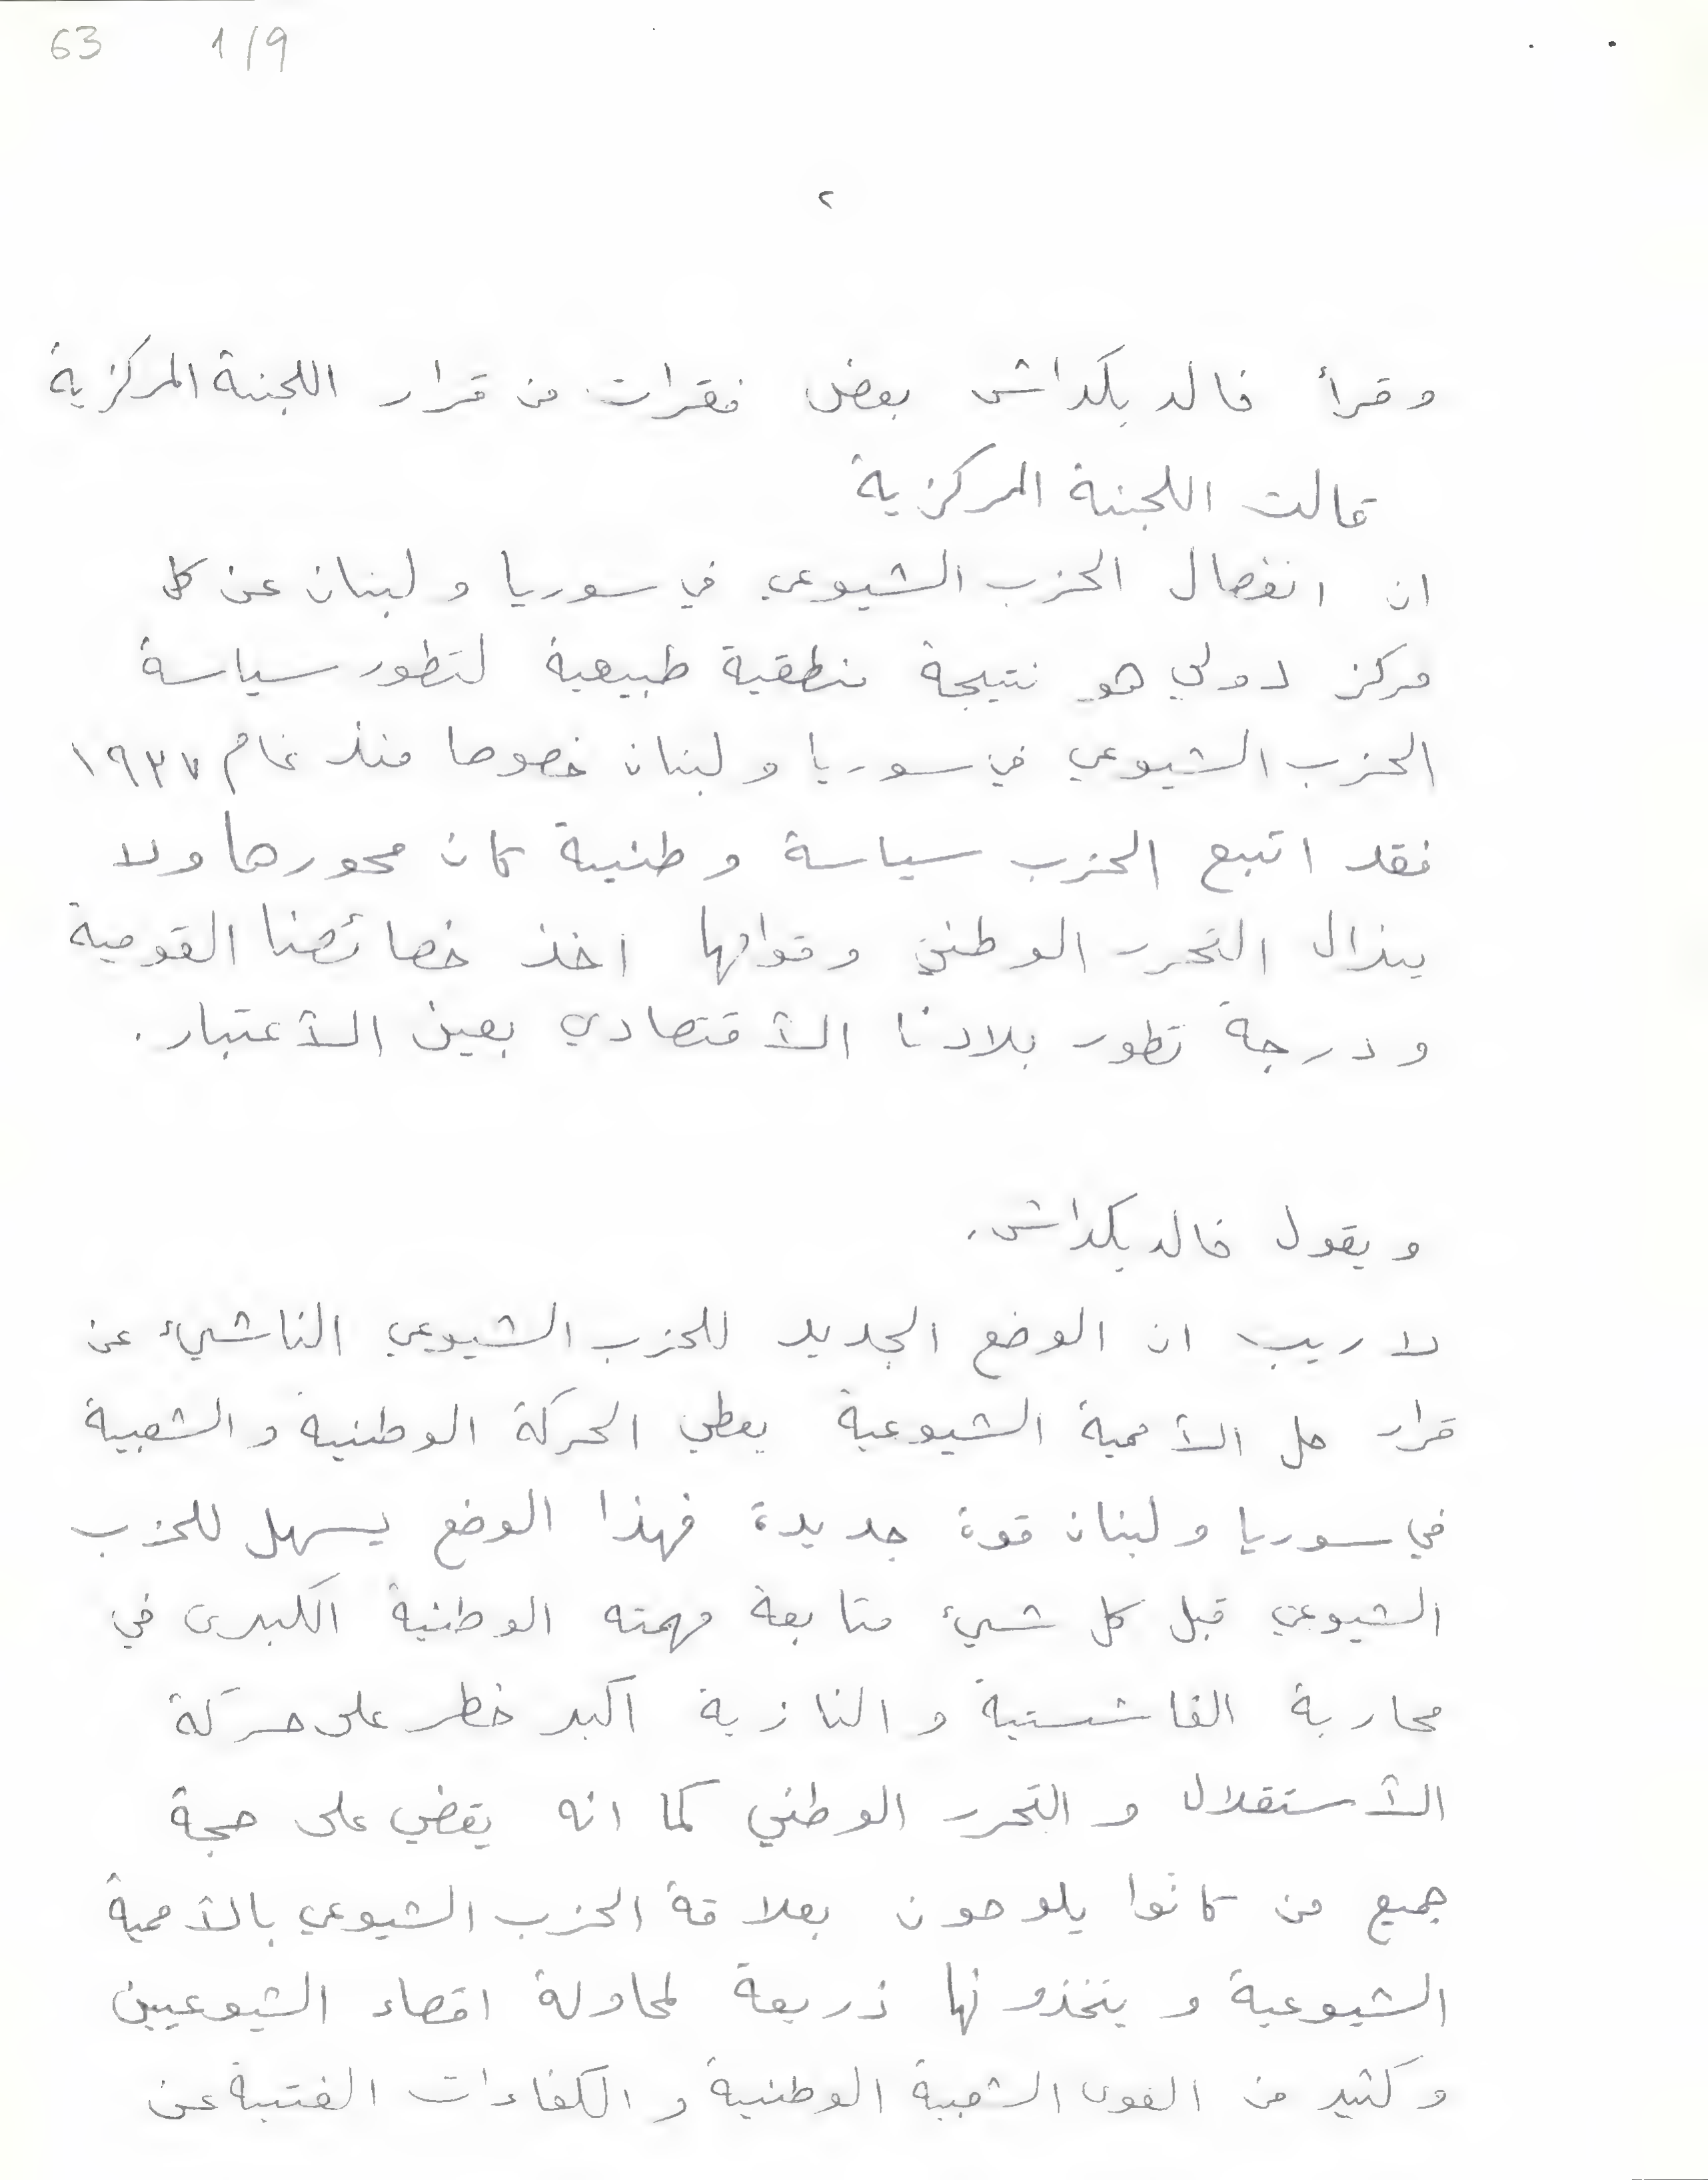 63 1/9
٢
وقرأ خالد بكداش بعض فقرات من قرار اللجنة المركزية
قالت اللجنة المركزية
ان انفصال الحزب الشيوعي في سوريا ولبنان عن كل
مركز دولي هو نتيجة منطقية طبيعية لتطور سياسة
الحزب الشيوعي في سوريا ولبنان خصوصا منذ عام ١٩٣٧
فقد اتبع الحزب سياسة وطنية كان محورها ولا
يزال التحرر الوطني وقوامها اخذ خصائصنا القومية
ودرجة تطور بلادنا الأقتصادي بعين الأعتبار.
ويقول خالد بكداش.
لا ريب ان الوضع الجديد للحزب الشيوعي الناشيء عن
قرار حل الأممية الشيوعية يعطي الحركة الوطنية والشعبية
في سوريا ولبنان قوة جديدة فهذا الوضع يسهل للحزب
الشيوعي قبل كل شيء متابعة مهمته الوطنية الكبرى في
محاربة الفاشستية والنازية اكبر خطر على حركة
الأستقلال والتحرر الوطني كما انه يقضي على حجة
جميع من كانوا يلوحون بعلاقة الحزب الشيوعي بالأممية
الشيوعية ويتخذونها ذريعة لمحاولة اقصاء الشيوعيين
وكثير من القوى الشعبية الوطنية والكفاءات الفتية عن